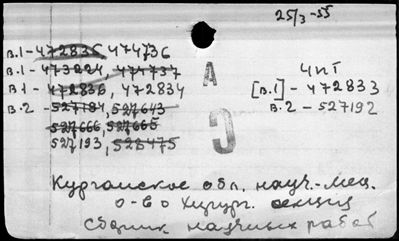 25/3-55
в.1-472836 474736
в.1-473224, 474737
в1-472836, 472834
в.2-527184, 527643
527666, 527665
527193, 528475
ЧПТ
[в.1]-472833
в.2-527192
А
С
Курганское обл. науч.-мед.
о-во Хирург. секция
Сборник научных работ